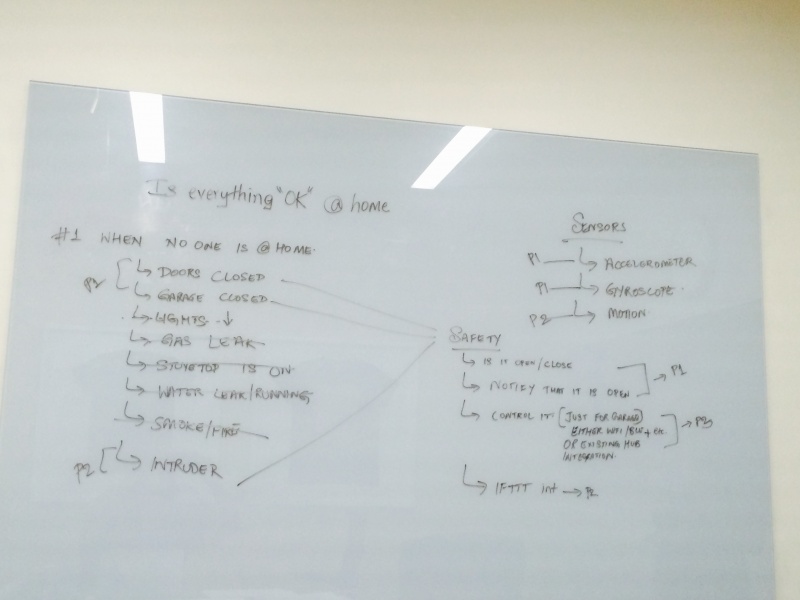 Is everything "OK" @ home
#1 WHEN NO ONE IS @ HOME.
DOORS CLOSED
GARAGE CLOSED
LIGHTS
GAS LEAK
STOVETOP IS ON
WATER LEAK/RUNNING
SMOKE/FIRE
P2 INTRUDER
SENSORS
P1 ACCELEROMETER
P1 GYROSCOPE.
P2 MOTION
SAFETY
IS IT OPEN/CLOSE
NOTIFY THAT IT IS OPEN
P1
CONTROL IT (JUST FOR GARAGE)
EITHER WIFI / etc.
OR EXISTING HUB
INTEGRATION.
IFTTT int P2